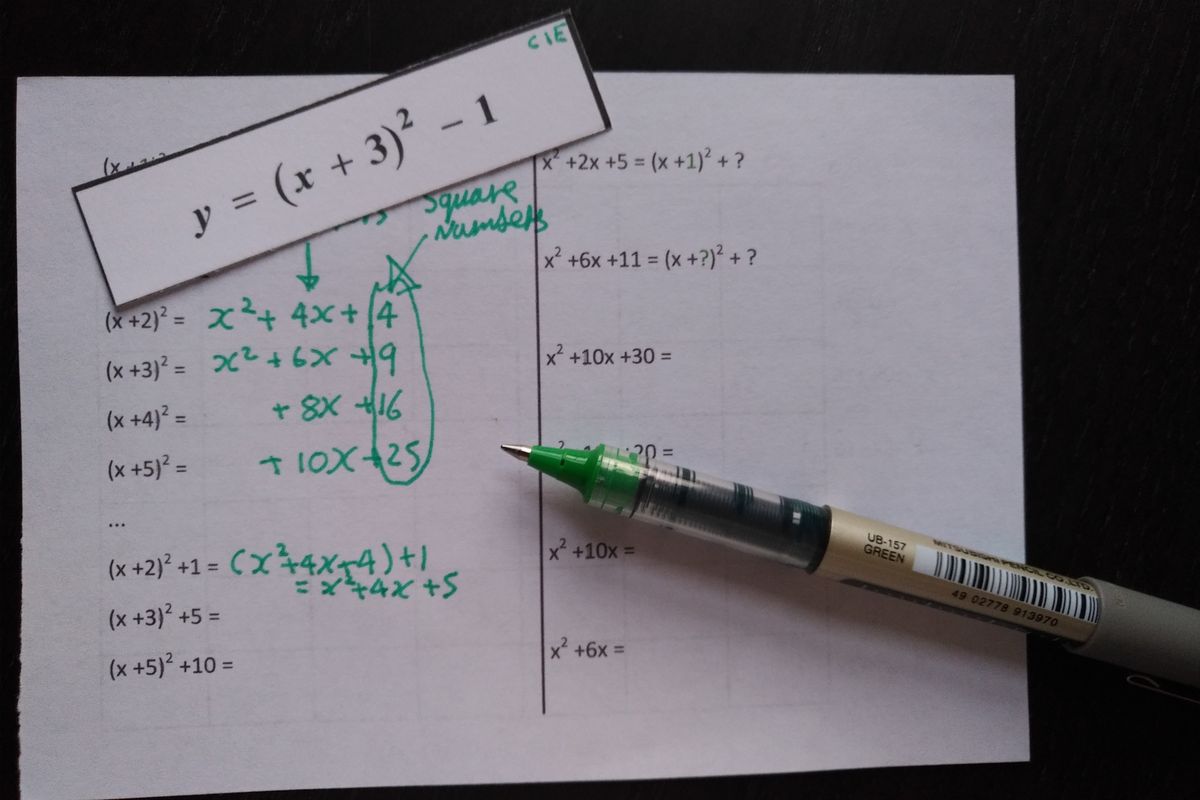 CIE
y = (x + 3)² − 1
Square
Numbers
(x +2)² = x² + 4x + 4
(x +3)² = x² + 6x + 9
(x +4)² = + 8x + 16
(x +5)² = + 10x + 25
...
(x +2)² +1 = (x² + 4x + 4) + 1
= x² + 4x + 5
(x +3)² +5 =
(x +5)² +10 =
x² +2x +5 = (x +1)² + ?
x² +6x +11 = (x +?)² + ?
x² +10x +30 =
20 =
x² +10x =
x² +6x =
UB-157
GREEN
MITSUBISHI PENCIL CO.,LTD.
49 02778 913970